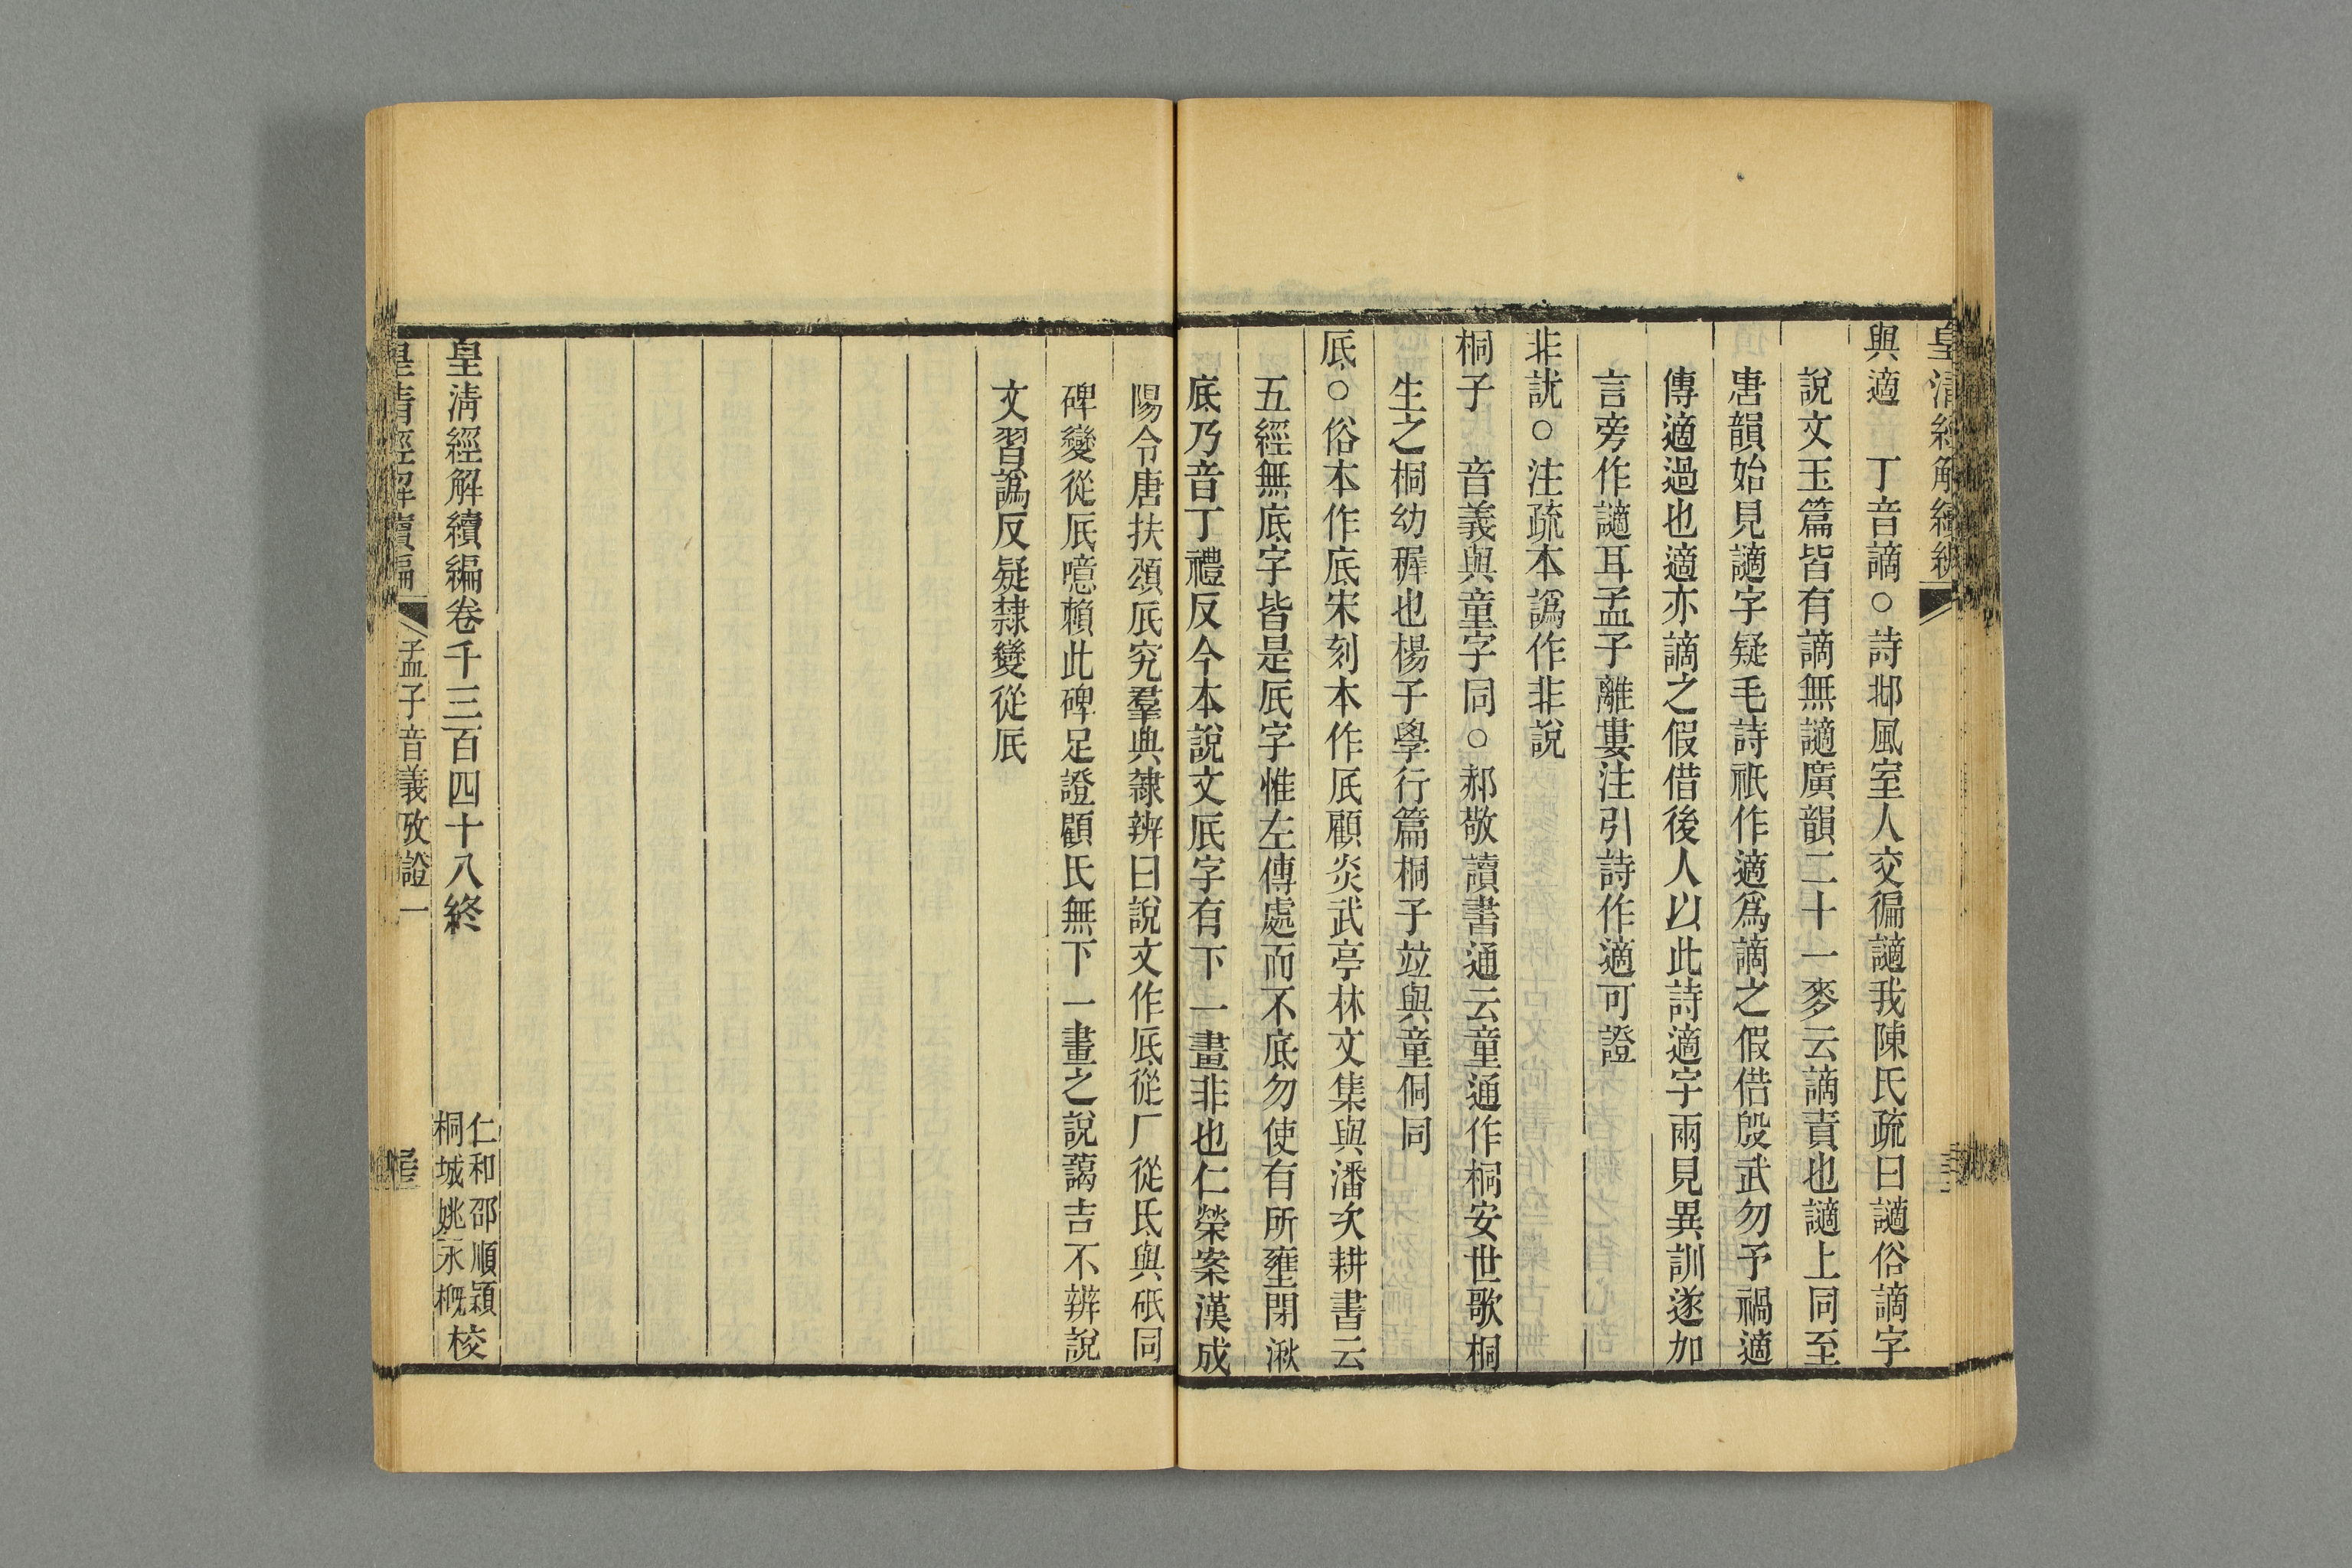 皇清經解續編
與適　丁音謫○詩邶風室人交徧讁我陳氏疏曰讁俗謫字
說文玉篇皆有謫無讁廣韻二十一麥云謫責也讁上同至
唐韻始見讁字疑毛詩祇作適爲謫之假借殷武勿予禍適
傳適過也適亦謫之假借後人以此詩適字兩見異訓遂加
言旁作讁耳孟子離婁注引詩作適可證
非訧○注疏本譌作非說
桐子　音義與童字同○郝敬讀書通云童通作桐安世歌桐
生之桐幼稺也楊子學行篇桐子竝與童侗同
厎○俗本作底宋刻本作厎顧炎武亭林文集與潘次耕書云
五經無底字皆是厎字惟左傳處而不底勿使有所壅閉湫
底乃音丁禮反今本說文厎字有下一畫非也仁榮案漢成
陽令唐扶頌厎究羣典隸辨曰說文作厎從厂從氐與砥同
碑變從厎噫賴此碑足證顧氏無下一畫之說藹吉不辨說
文習譌反疑隸變從厎
皇淸經解續編卷千三百四十八終
仁和邵順穎
桐城姚永概
校
皇清經解續編
孟子音義攷證一